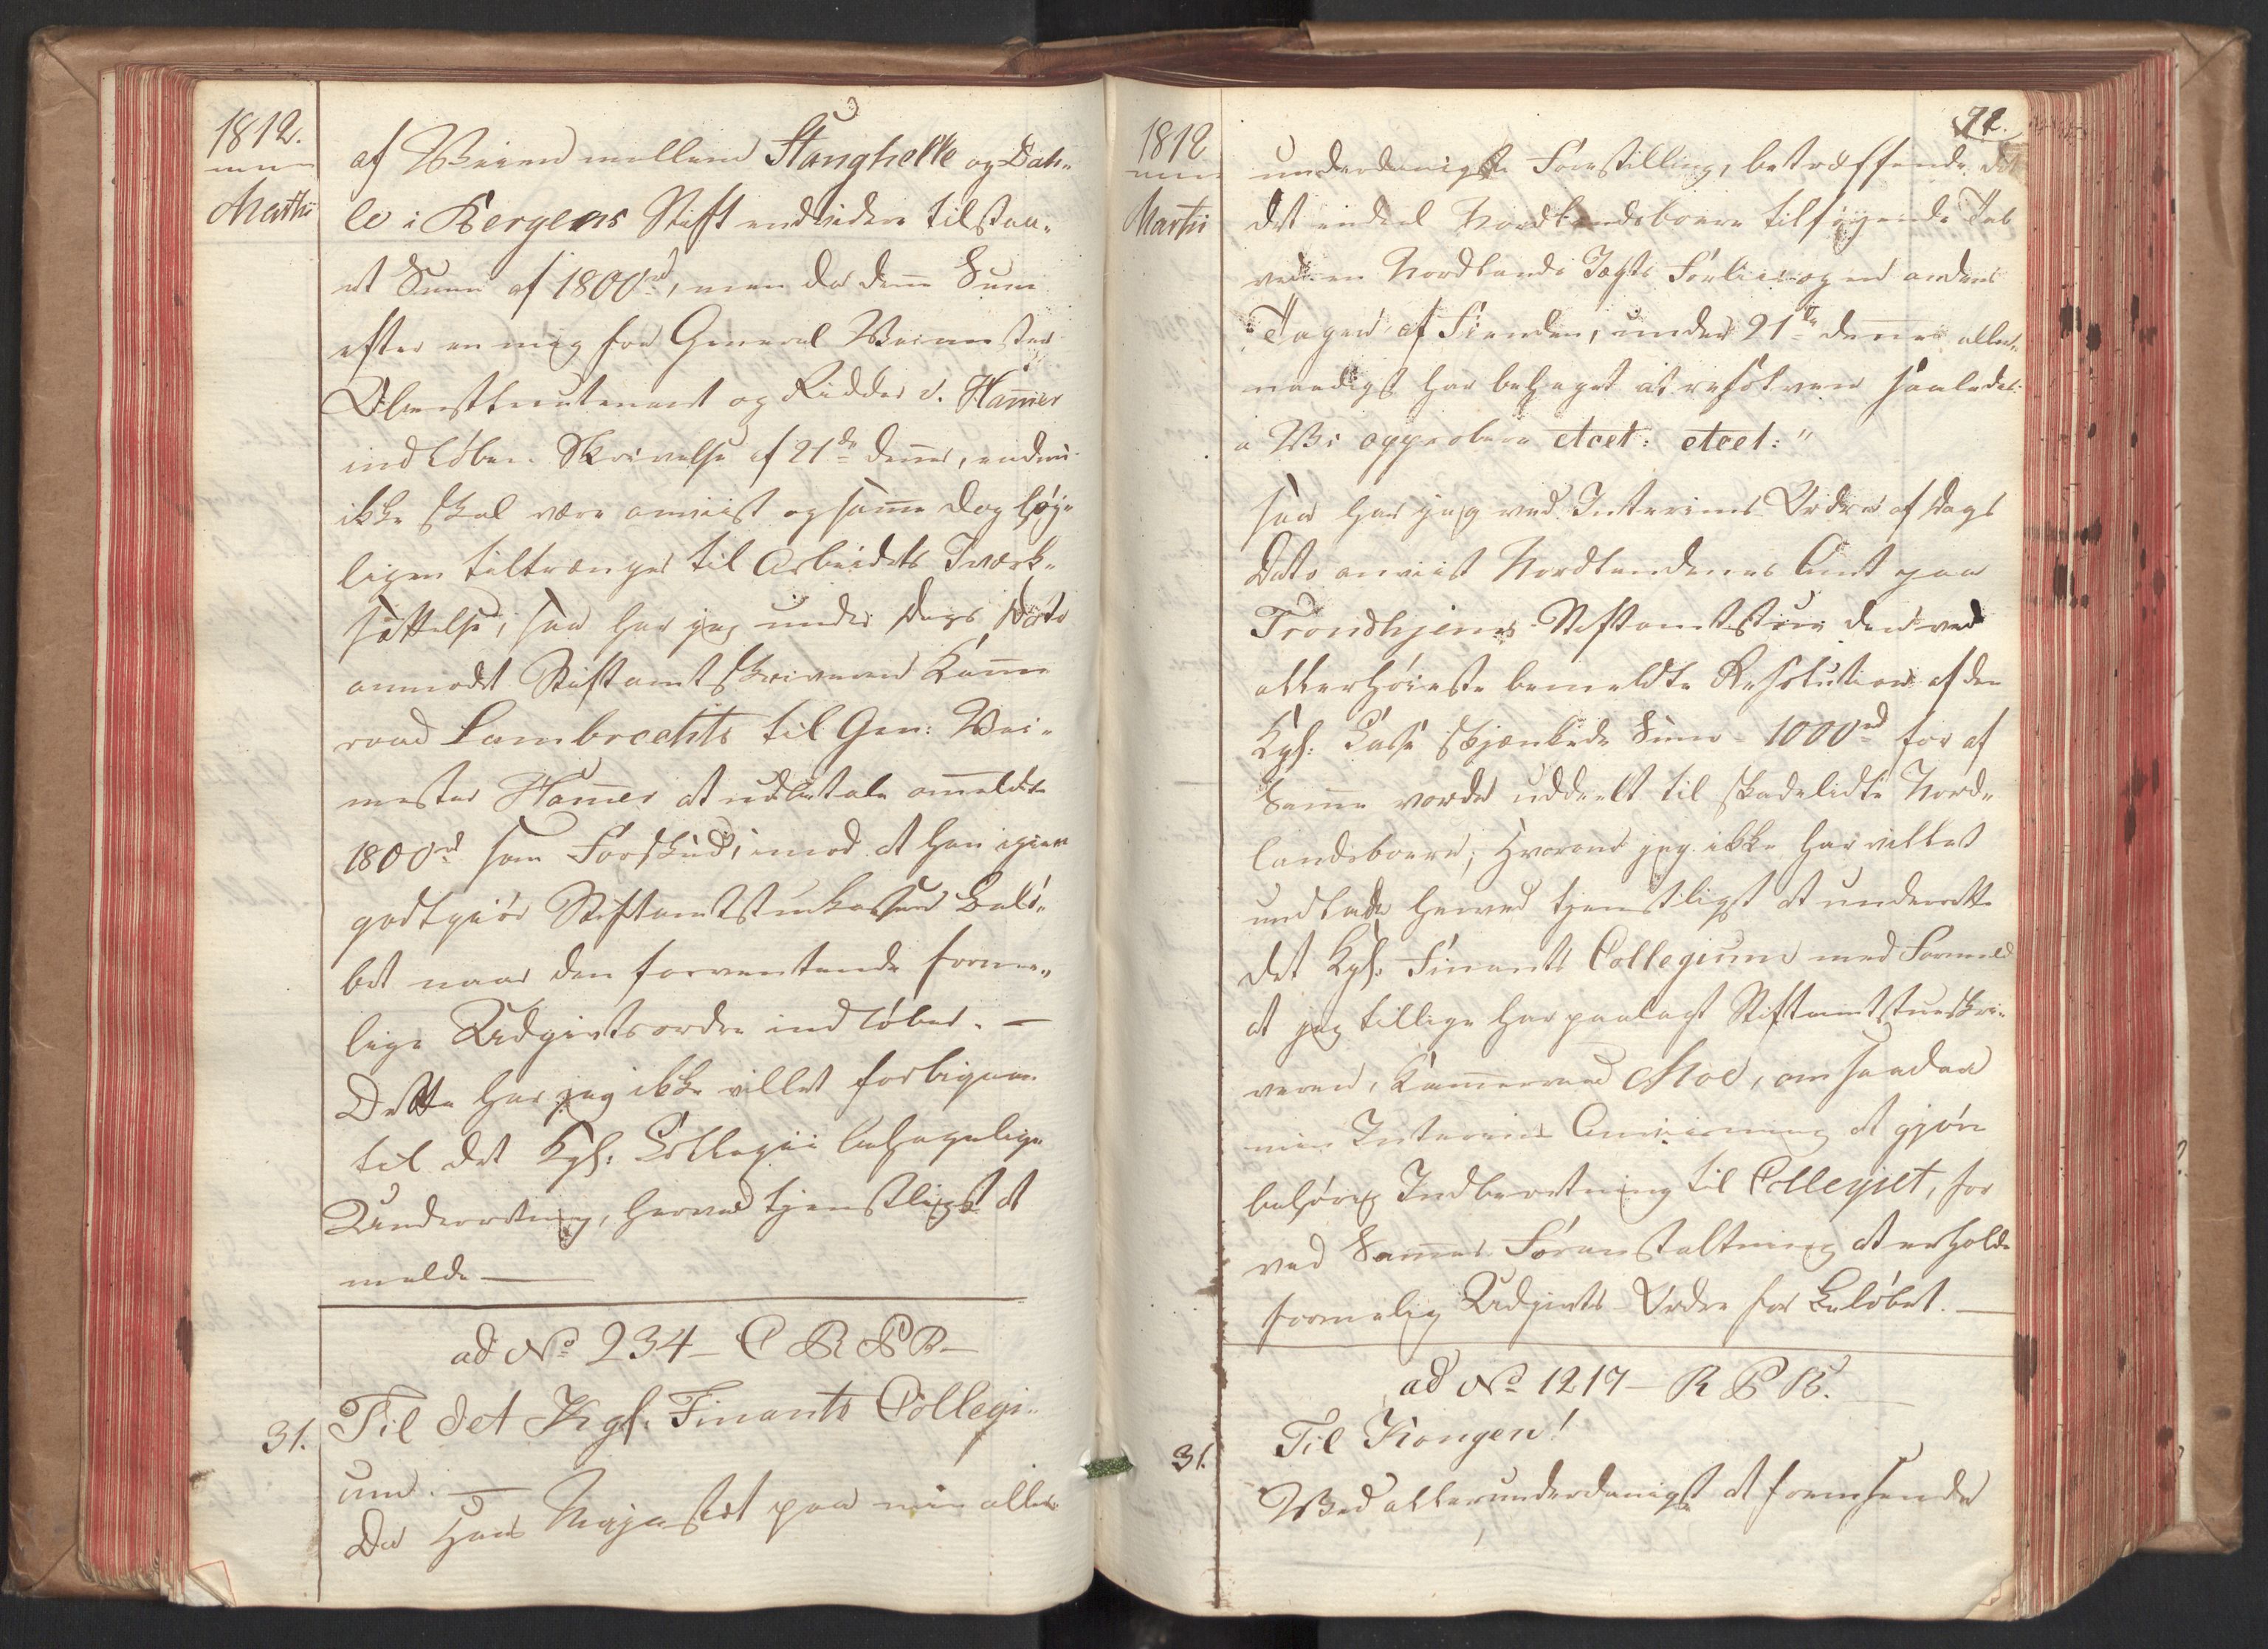 1812.
Martii
af Veien mellem Stanghelle og Dah-
le i Bergens Stift endvidere tilstaa-
et Sum af 1800 rd, men da denne Sum
efter en mig fra General Veimester
Oberstlieutenant og Ridder v. Ham̄er
indløben Skrivelse af 21de dennes, endnu
ikke skal være anviist og sam̄e dog høy-
ligen tiltrænges til Arbeidets Iværk-
sættelse; saa har jeg under Dags Dato
anmodet Stiftamtskriveren Kam̄er
raad Lambrechts til Gen: Vei-
mester Ham̄er at udbetale anmeldte
1800 rd som Forskud, imod at han igien
godtgiør Stiftamtstuekassen Belø-
bet naar den forventende forme-
lige Udgivtsordre indløber. —
Dette har jeg ikke villet forbigaae
til det Kgl: Collegii behagelige
Underretning, herved tjenstligst at
melde —
ad No 234 — C R P R —
31. Til det Kgl. Finants Collegi-
um. —
Da Hans Majestæt paa min aller-
1812
Martii
72.
underdanigste Forestilling, betræffende det
det endeel Nordlandsboere tilføyende Tab
ved en Nordlands Jægts Forliis og en andens
Tagen af Fienden, under 21de dennes aller-
naadigst har behaget at resolvere saaledes:
"Vi approbere etcet: etcet:"
saa har jeg ved Interims Ordre af Dags
Dato anviist Nordlandenes Amt paa
Trondhjems Stiftamtstue den ved
allerhøieste bemeldte Resolution af den
Kgl: Casse skjænkede Sum 1000 rd for af
Sam̄e vorde uddeelt til skadelidte Nord-
landsboere; Hvorom jeg ikke har villet
undlade herved tjenstligst at underrette
det Kgl: Finants Collegium med Formeld
at jeg tillige har paalagt Stiftamtstueskri-
veren, Kam̄erraad Moe, om saadan
min Interims Anviisning at gjøre
behørig Indberetning til Collegiet, for
ved Sam̄es Foranstaltning at erholde
formelig Udgivts-Ordre for Beløbet. —
ad No 1217 — R P R.
31. Til Kongen!
Ved allerunderdanigst at fremsende